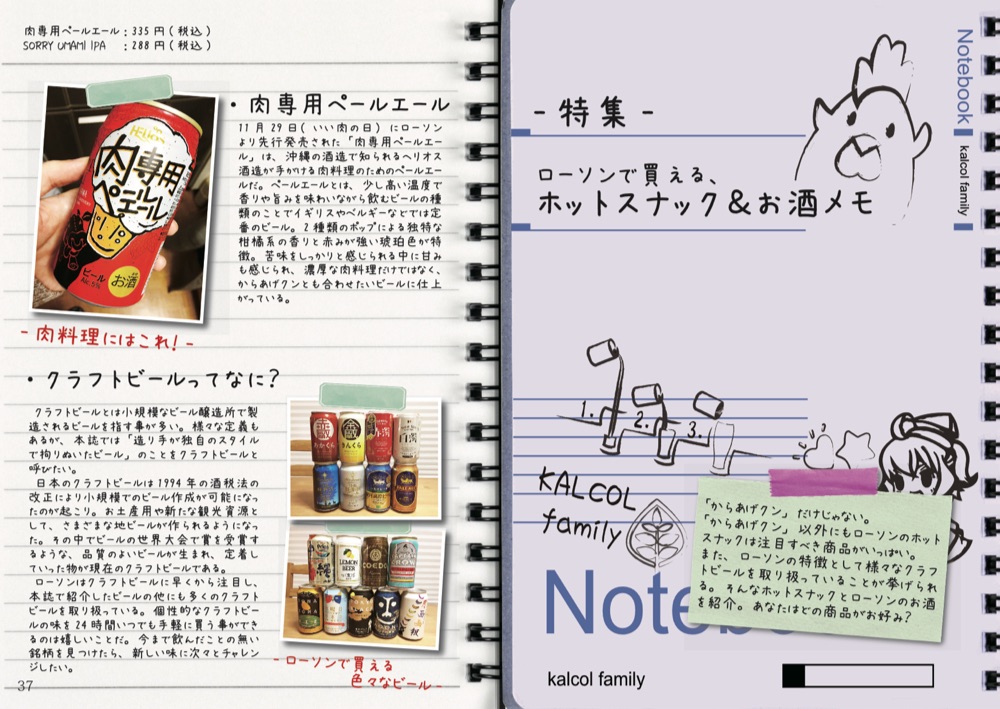 肉専用ペールエール：335 円 ( 税込 )
SORRY UMAMI IPA ：288 円 ( 税込 )
・肉専用ペールエール
11 月 29 日 ( いい肉の日 ) にローソン
より先行発売された「肉専用ペールエー
ル」は、沖縄の酒造で知られるヘリオス
酒造が手がける肉料理のためのペールエー
ルだ。ペールエールとは、少し高い温度で
香りや旨みを味わいながら飲むビールの種
類のことでイギリスやベルギーなどでは定
番のビール。2 種類のホップによる独特な
柑橘系の香りと赤みが強い琥珀色が特
徴。苦味をしっかりと感じられる中に甘み
も感じられ、濃厚な肉料理だけではなく、
からあげクンとも合わせたいビールに仕上
がっている。
HELIOS
肉専用
ペール
エール
ビール
Alc.5%
お酒
- 肉料理にはこれ! -
・クラフトビールってなに?
クラフトビールとは小規模なビール醸造所で製
造されるビールを指す事が多い。様々な定義も
あるが、本誌では「造り手が独自のスタイル
で拘りぬいたビール」のことをクラフトビールと
呼びたい。
日本のクラフトビールは 1994 年の酒税法の
改正により小規模でのビール作成が可能になっ
たのが起こり。お土産用や新たな観光資源と
して、さまざまな地ビールが作られるようになっ
た。その中でビールの世界大会で賞を受賞す
るような、品質のよいビールが生まれ、定着し
ていった物が現在のクラフトビールである。
ローソンはクラフトビールに早くから注目し、
本誌で紹介したビールの他にも多くのクラフト
ビールを取り扱っている。個性的なクラフトビー
ルの味を 24 時間いつでも手軽に買う事ができ
るのは嬉しいことだ。今まで飲んだことの無い
銘柄を見つけたら、新しい味に次々とチャレン
ジしたい。
LEMON
BEER
COEDO
- ローソンで買える
色々なビール -
37
- 特集 -
ローソンで買える、
ホットスナック＆お酒メモ
Notebook
kalcol family
1.
2.
3.
KALCOL
family
「からあげクン」だけじゃない。
「からあげクン」以外にもローソンのホット
スナックは注目すべき商品がいっぱい。
また、ローソンの特徴として様々なクラフ
トビールを取り扱っていることが挙げられ
る。そんなホットスナックとローソンのお酒
を紹介。あなたはどの商品がお好み?
Notebook
kalcol family